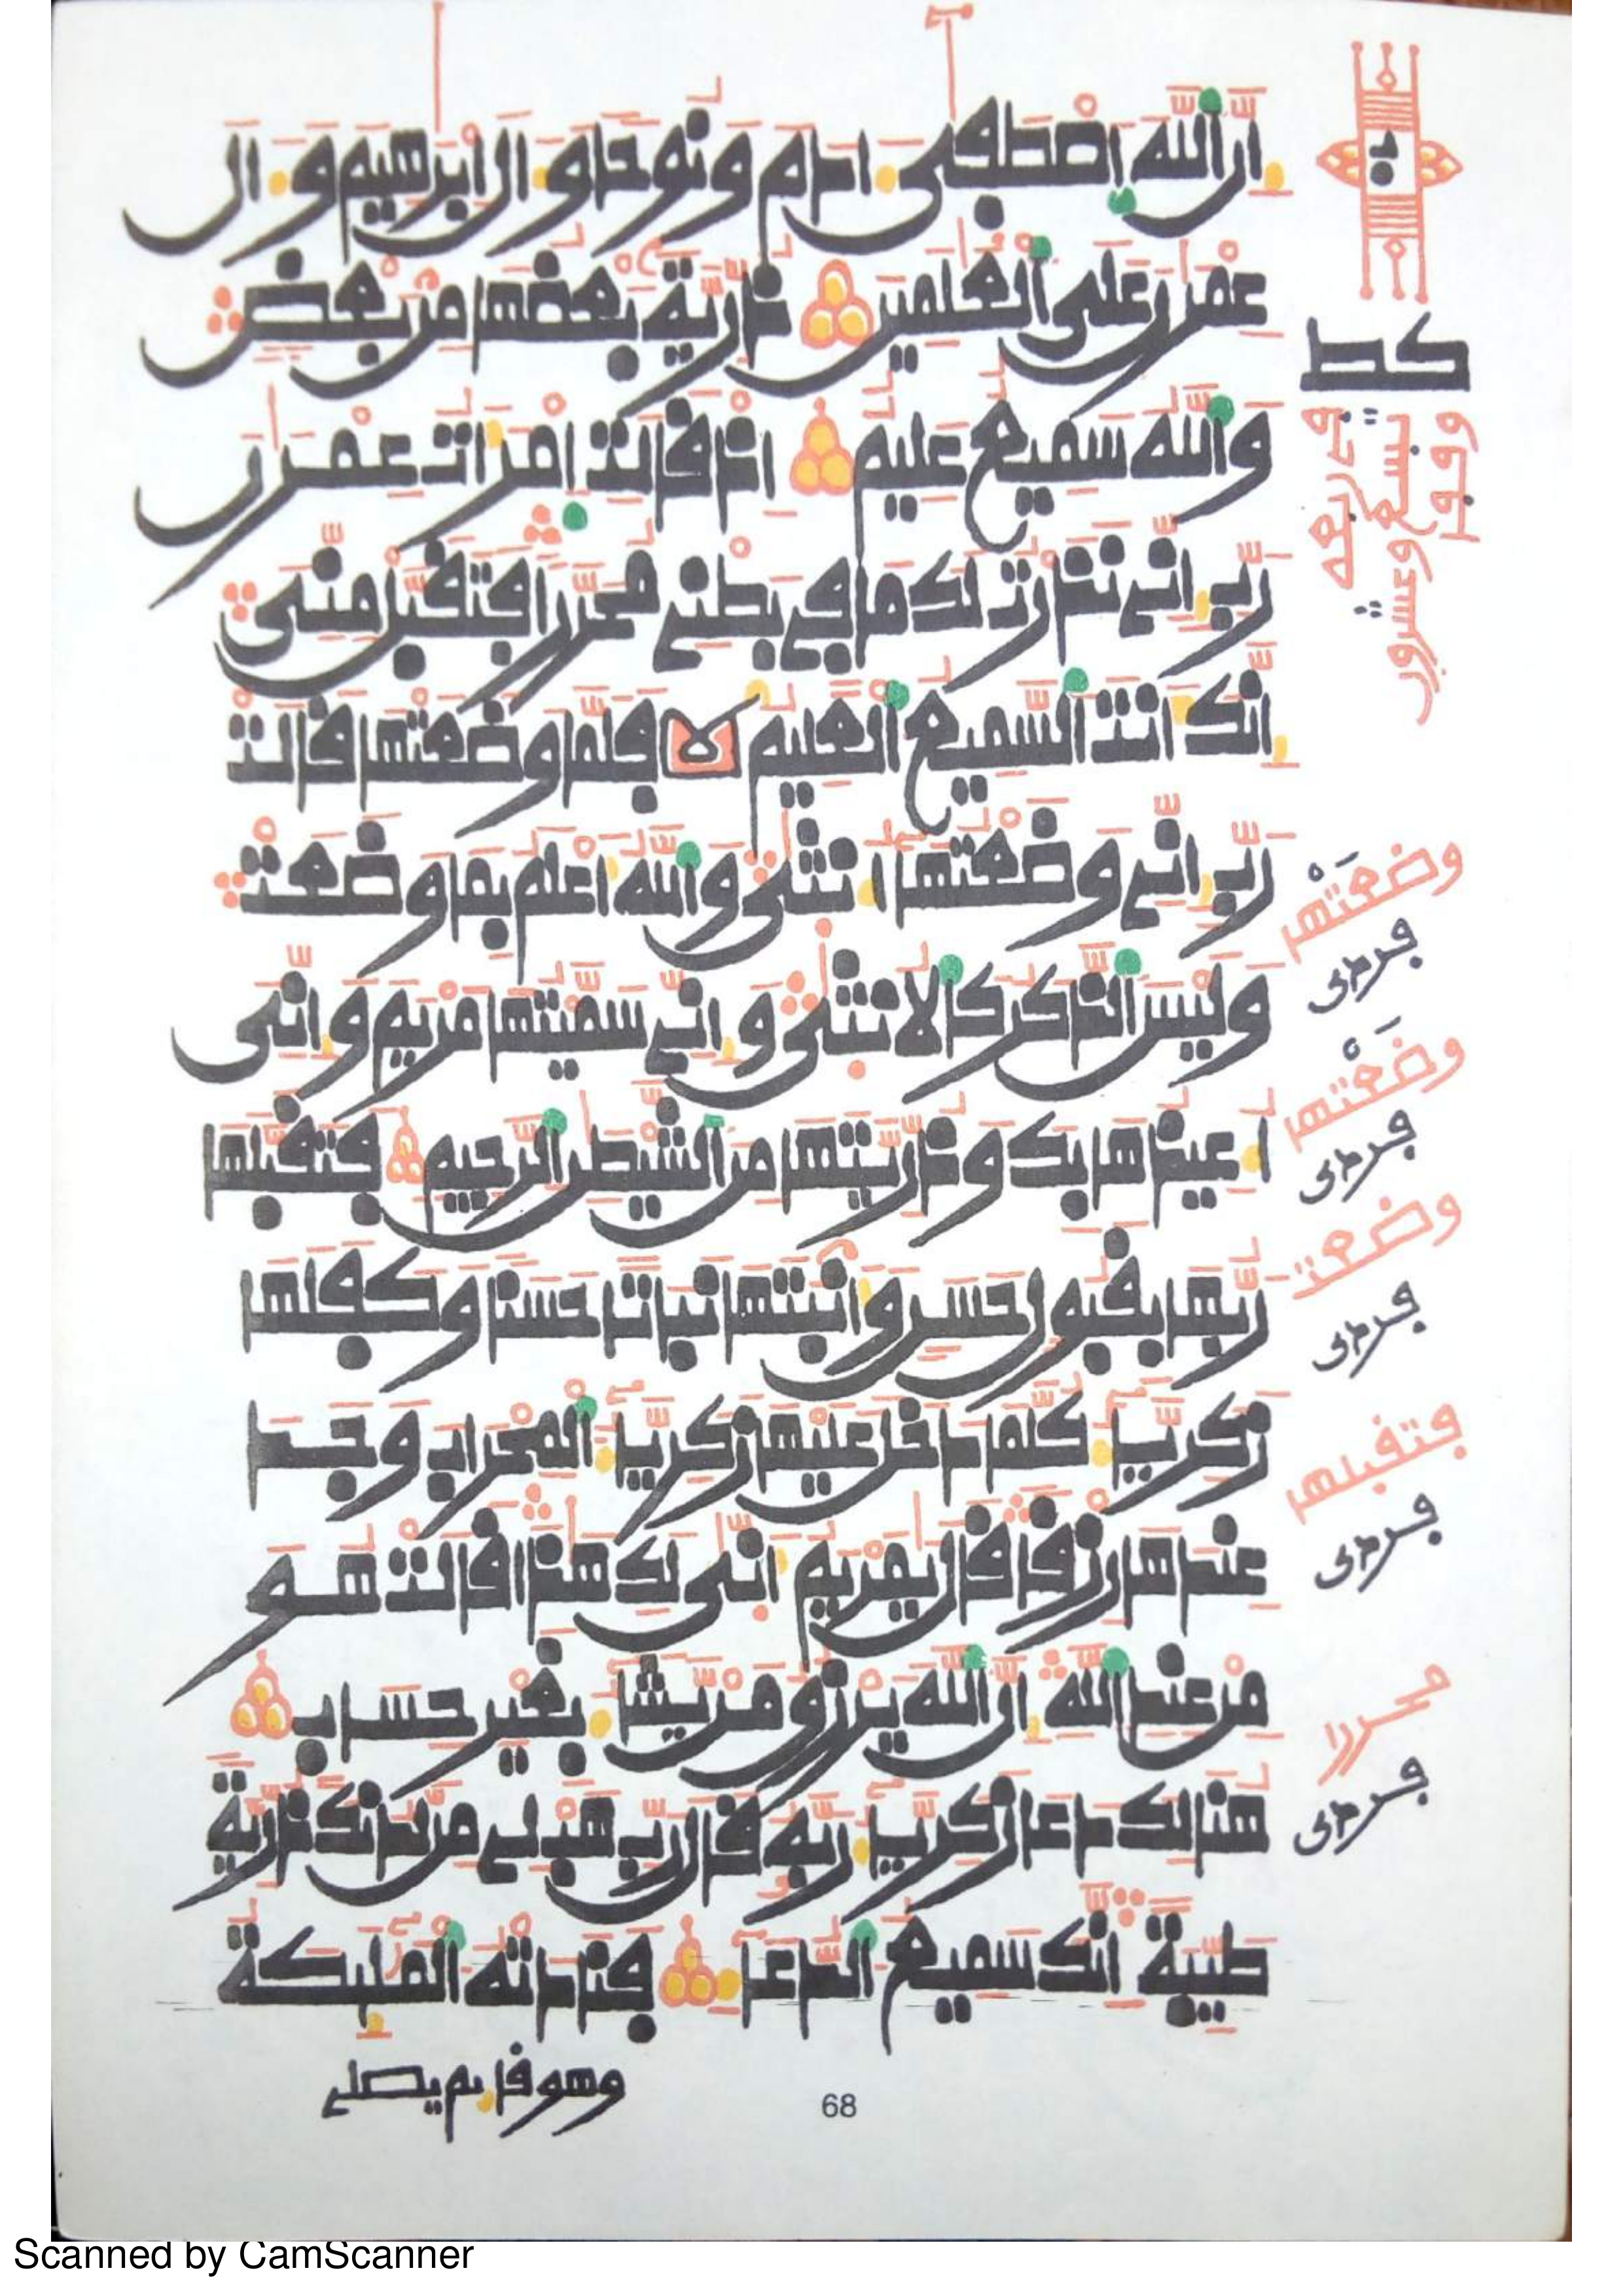 إن الله اصطفى ءادم ونوحا وءال إبرهيم وءال
عمرن على العلمين ذرية بعضها من بعض
والله سميع عليم إذ قالت امرأت عمرن
رب إني نذرت لك ما في بطني محررا فتقبل مني
إنك أنت السميع العليم فلما وضعتها قالت
رب إني وضعتها أنثى والله أعلم بما وضعت
وليس الذكر كالأنثى وإني سميتها مريم وإني
أعيذها بك وذريتها من الشيطن الرجيم فتقبلها
ربها بقبول حسن وأنبتها نباتا حسنا وكفلها
زكرياء كلما دخل عليها زكرياء المحراب وجد
عندها رزقا قال يمريم أنى لك هذا قالت هو
من عند الله إن الله يرزق من يشاء بغير حساب
هنالك دعا زكرياء ربه قال رب هب لي من لدنك ذرية
طيبة إنك سميع الدعاء فنادته الملئكة
وهو قائم يصلي
68
كط
وضعتها
وضعتها
وضعت
فتقبلها
محررا
Scanned by CamScanner